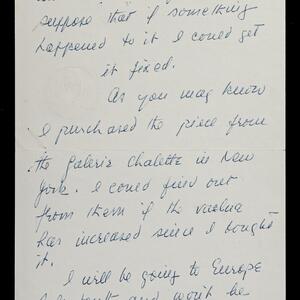 suppose that if something
happened to it I could get
it fixed.
As you may know
I purchased the piece from
the Galerie Chalette in New
York. I could find out
from them if the value
has increased since I bought
it.
I will be going to Europe
and won't be